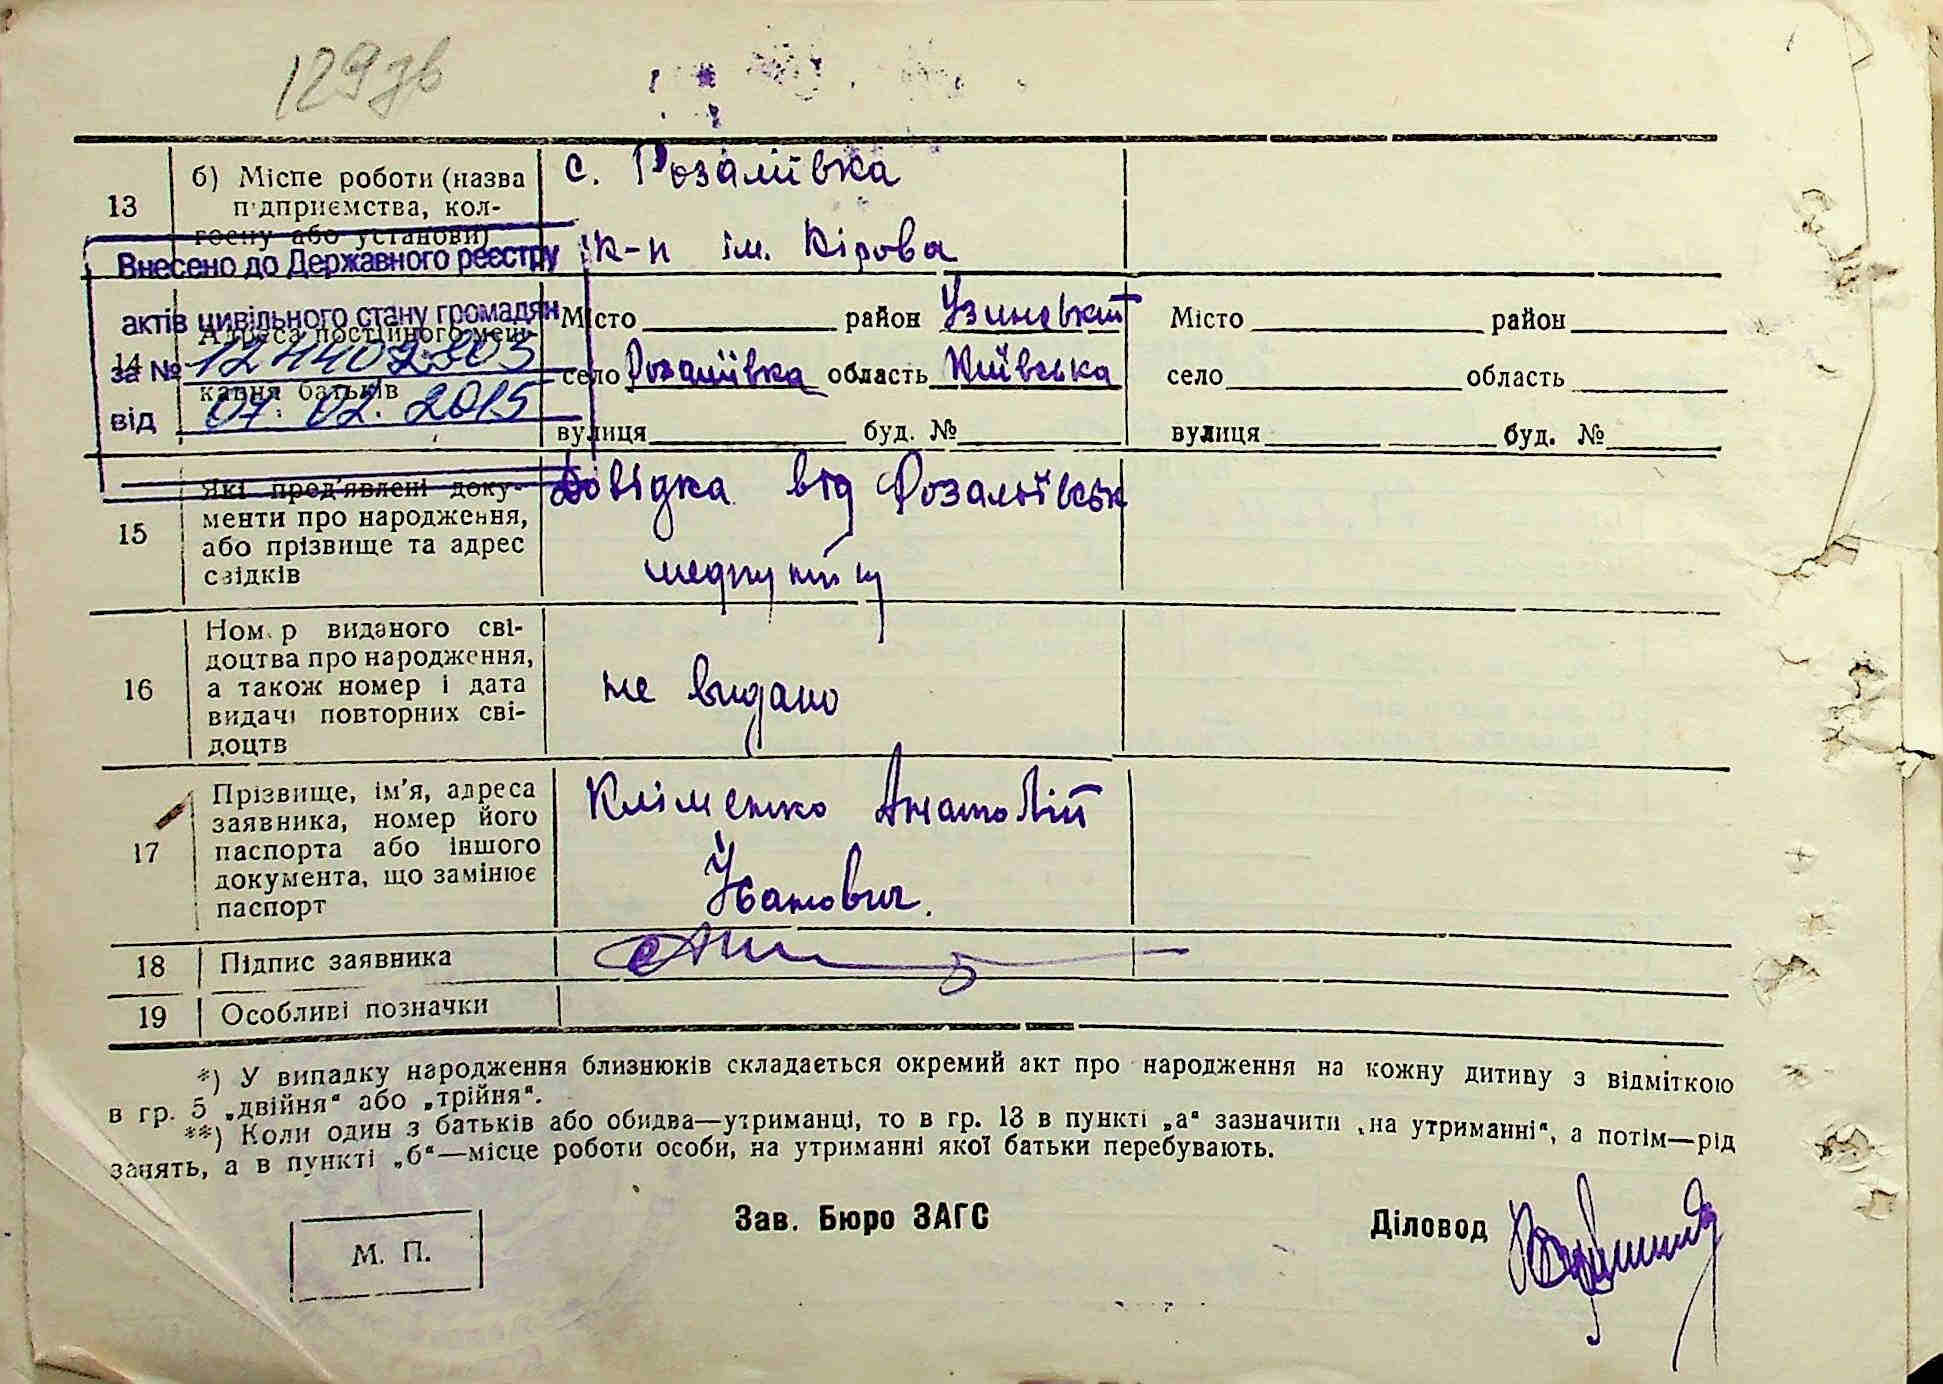 129зв
13
б) Місце роботи (назва
підприємства, кол-
госпу або установи)
с. Розаліївка
к-п ім. Кірова
Внесено до Державного реєстру
актів цивільного стану громадян
за №
від 07. 02. 2015
14
Адреса постійного меш-
кання батьків
Місто район Узинський
село Розаліївка область Київська
вулиця буд. №
Місто район
село область
вулиця буд. №
15
Які пред'явлені доку-
менти про народження,
або прізвище та адрес
свідків
Довідка від Розаліївськ
медпункту
16
Номер виданого сві-
доцтва про народження,
а також номер і дата
видачі повторних сві-
доцтв
не видано
17
Прізвище, ім'я, адреса
заявника, номер його
паспорта або іншого
документа, що замінює
паспорт
Кліменко Анатолій
Іванович.
18
Підпис заявника
19
Особливі позначки
*) У випадку народження близнюків складається окремий акт про народження на кожну дитину з відміткою
в гр. 5 „двійня“ або „трійня“.
**) Коли один з батьків або обидва—утриманці, то в гр. 13 в пункті „а“ зазначити „на утриманні“, а потім—рід
занять, а в пункті „б“—місце роботи особи, на утриманні якої батьки перебувають.
М. П.
Зав. Бюро ЗАГС
Діловод